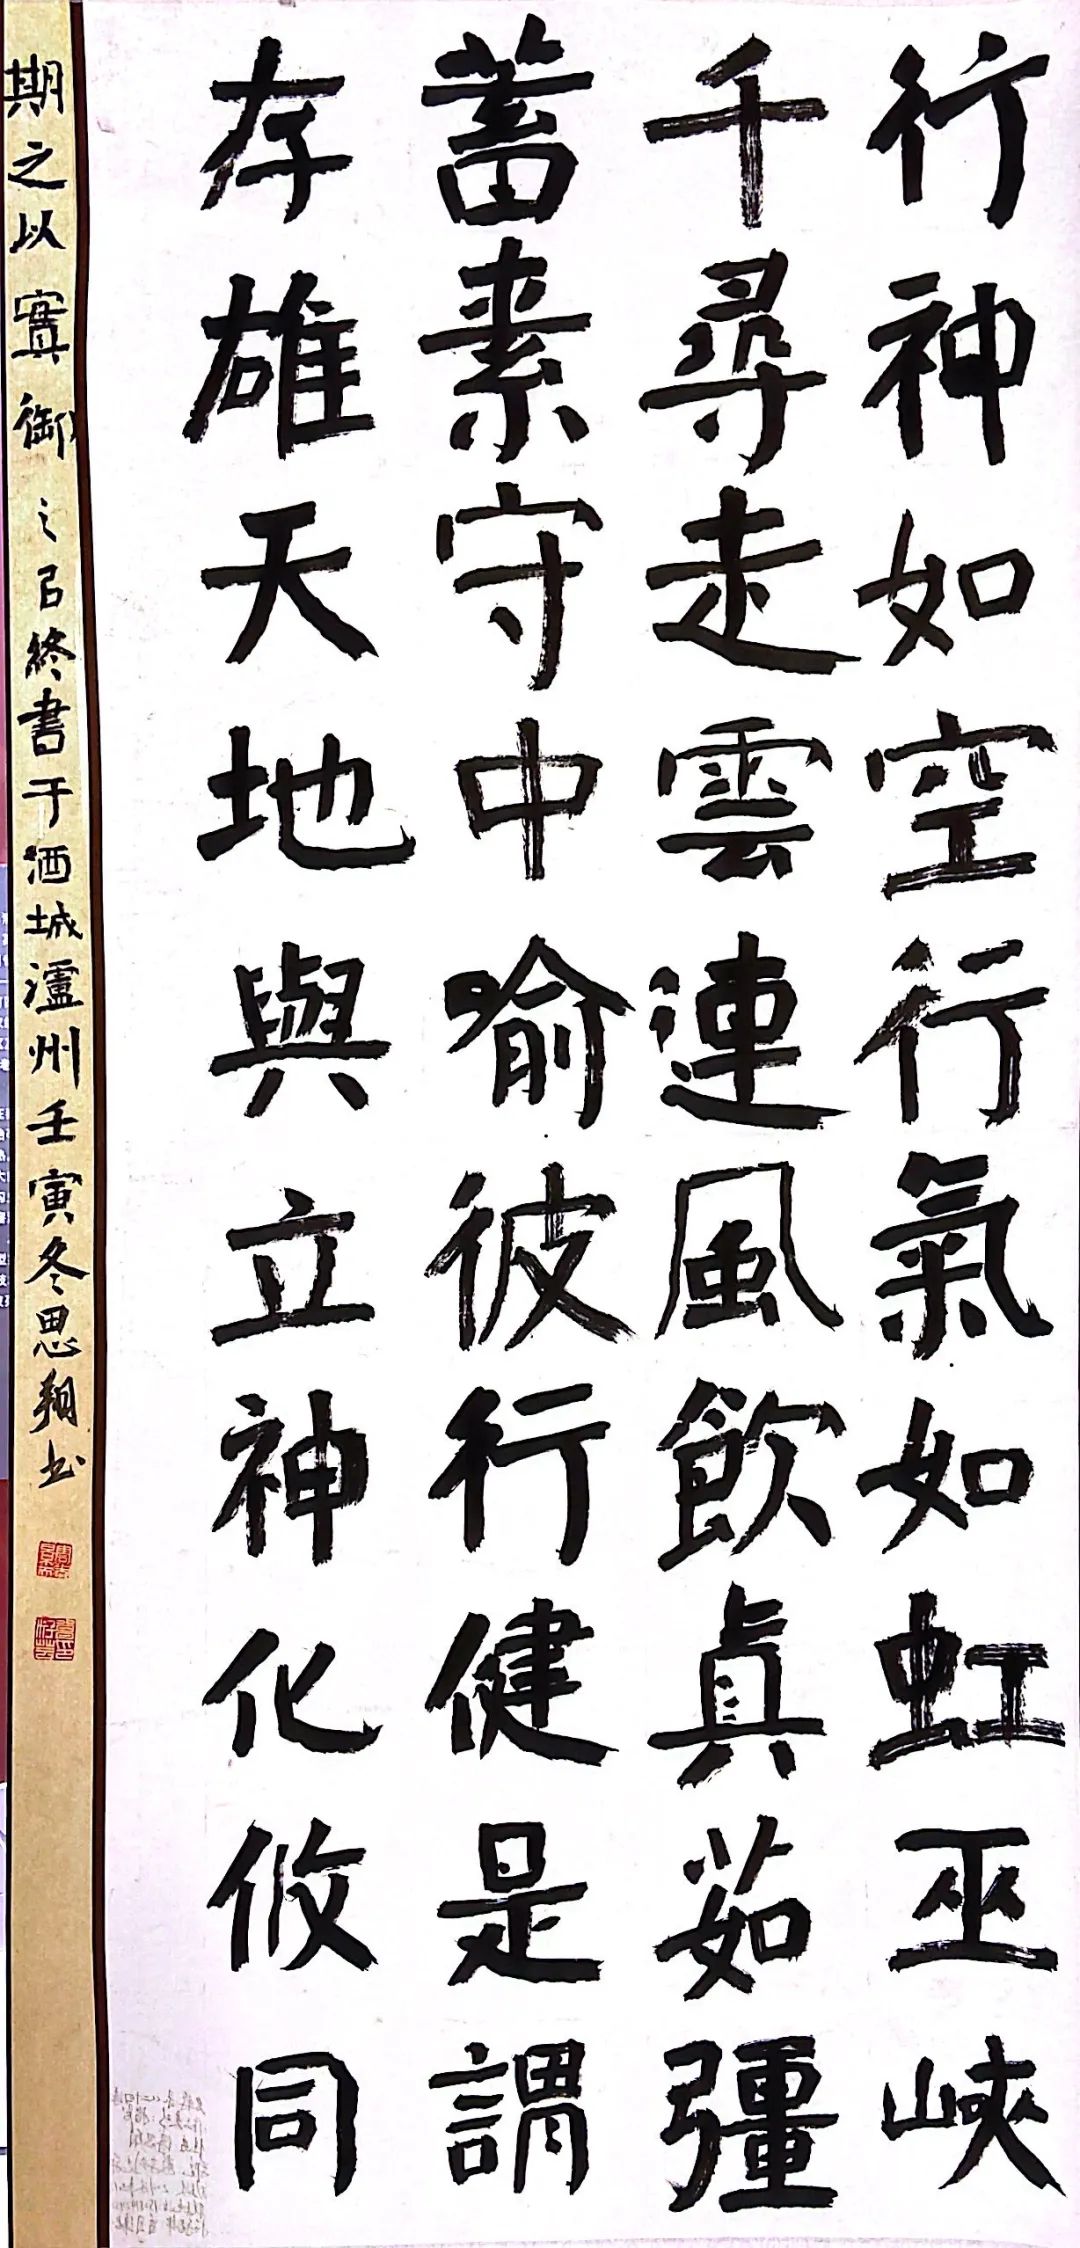 行神如空行氣如虹巫峽
千尋走雲連風飲真茹彊
蓄素守中喻彼行健是謂
存雄天地與立神化攸同
期之以實御之以終書于酒城瀘州壬寅冬思翔书